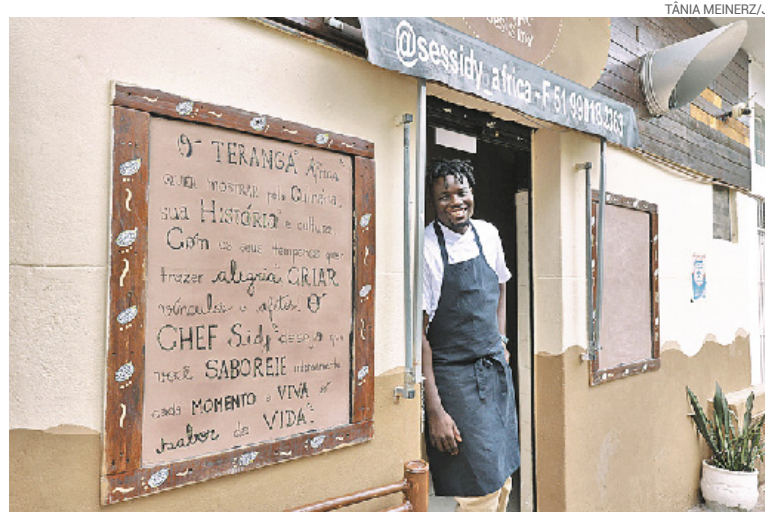 TÂNIA MEINERZ/J
@sessidy_africa - F 51
O TERANGA África
QUER MOSTRAR pela Culinária
sua HISTÓRIA e cultura
Com os seus temperos quer
trazer alegria CRIAR
vínculos e afetos O
CHEF Sidy deseja que
você SABOREIE
cada MOMENTO e VIVA o
sabor da VIDA